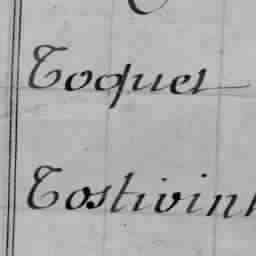 Toquet
Tostivint